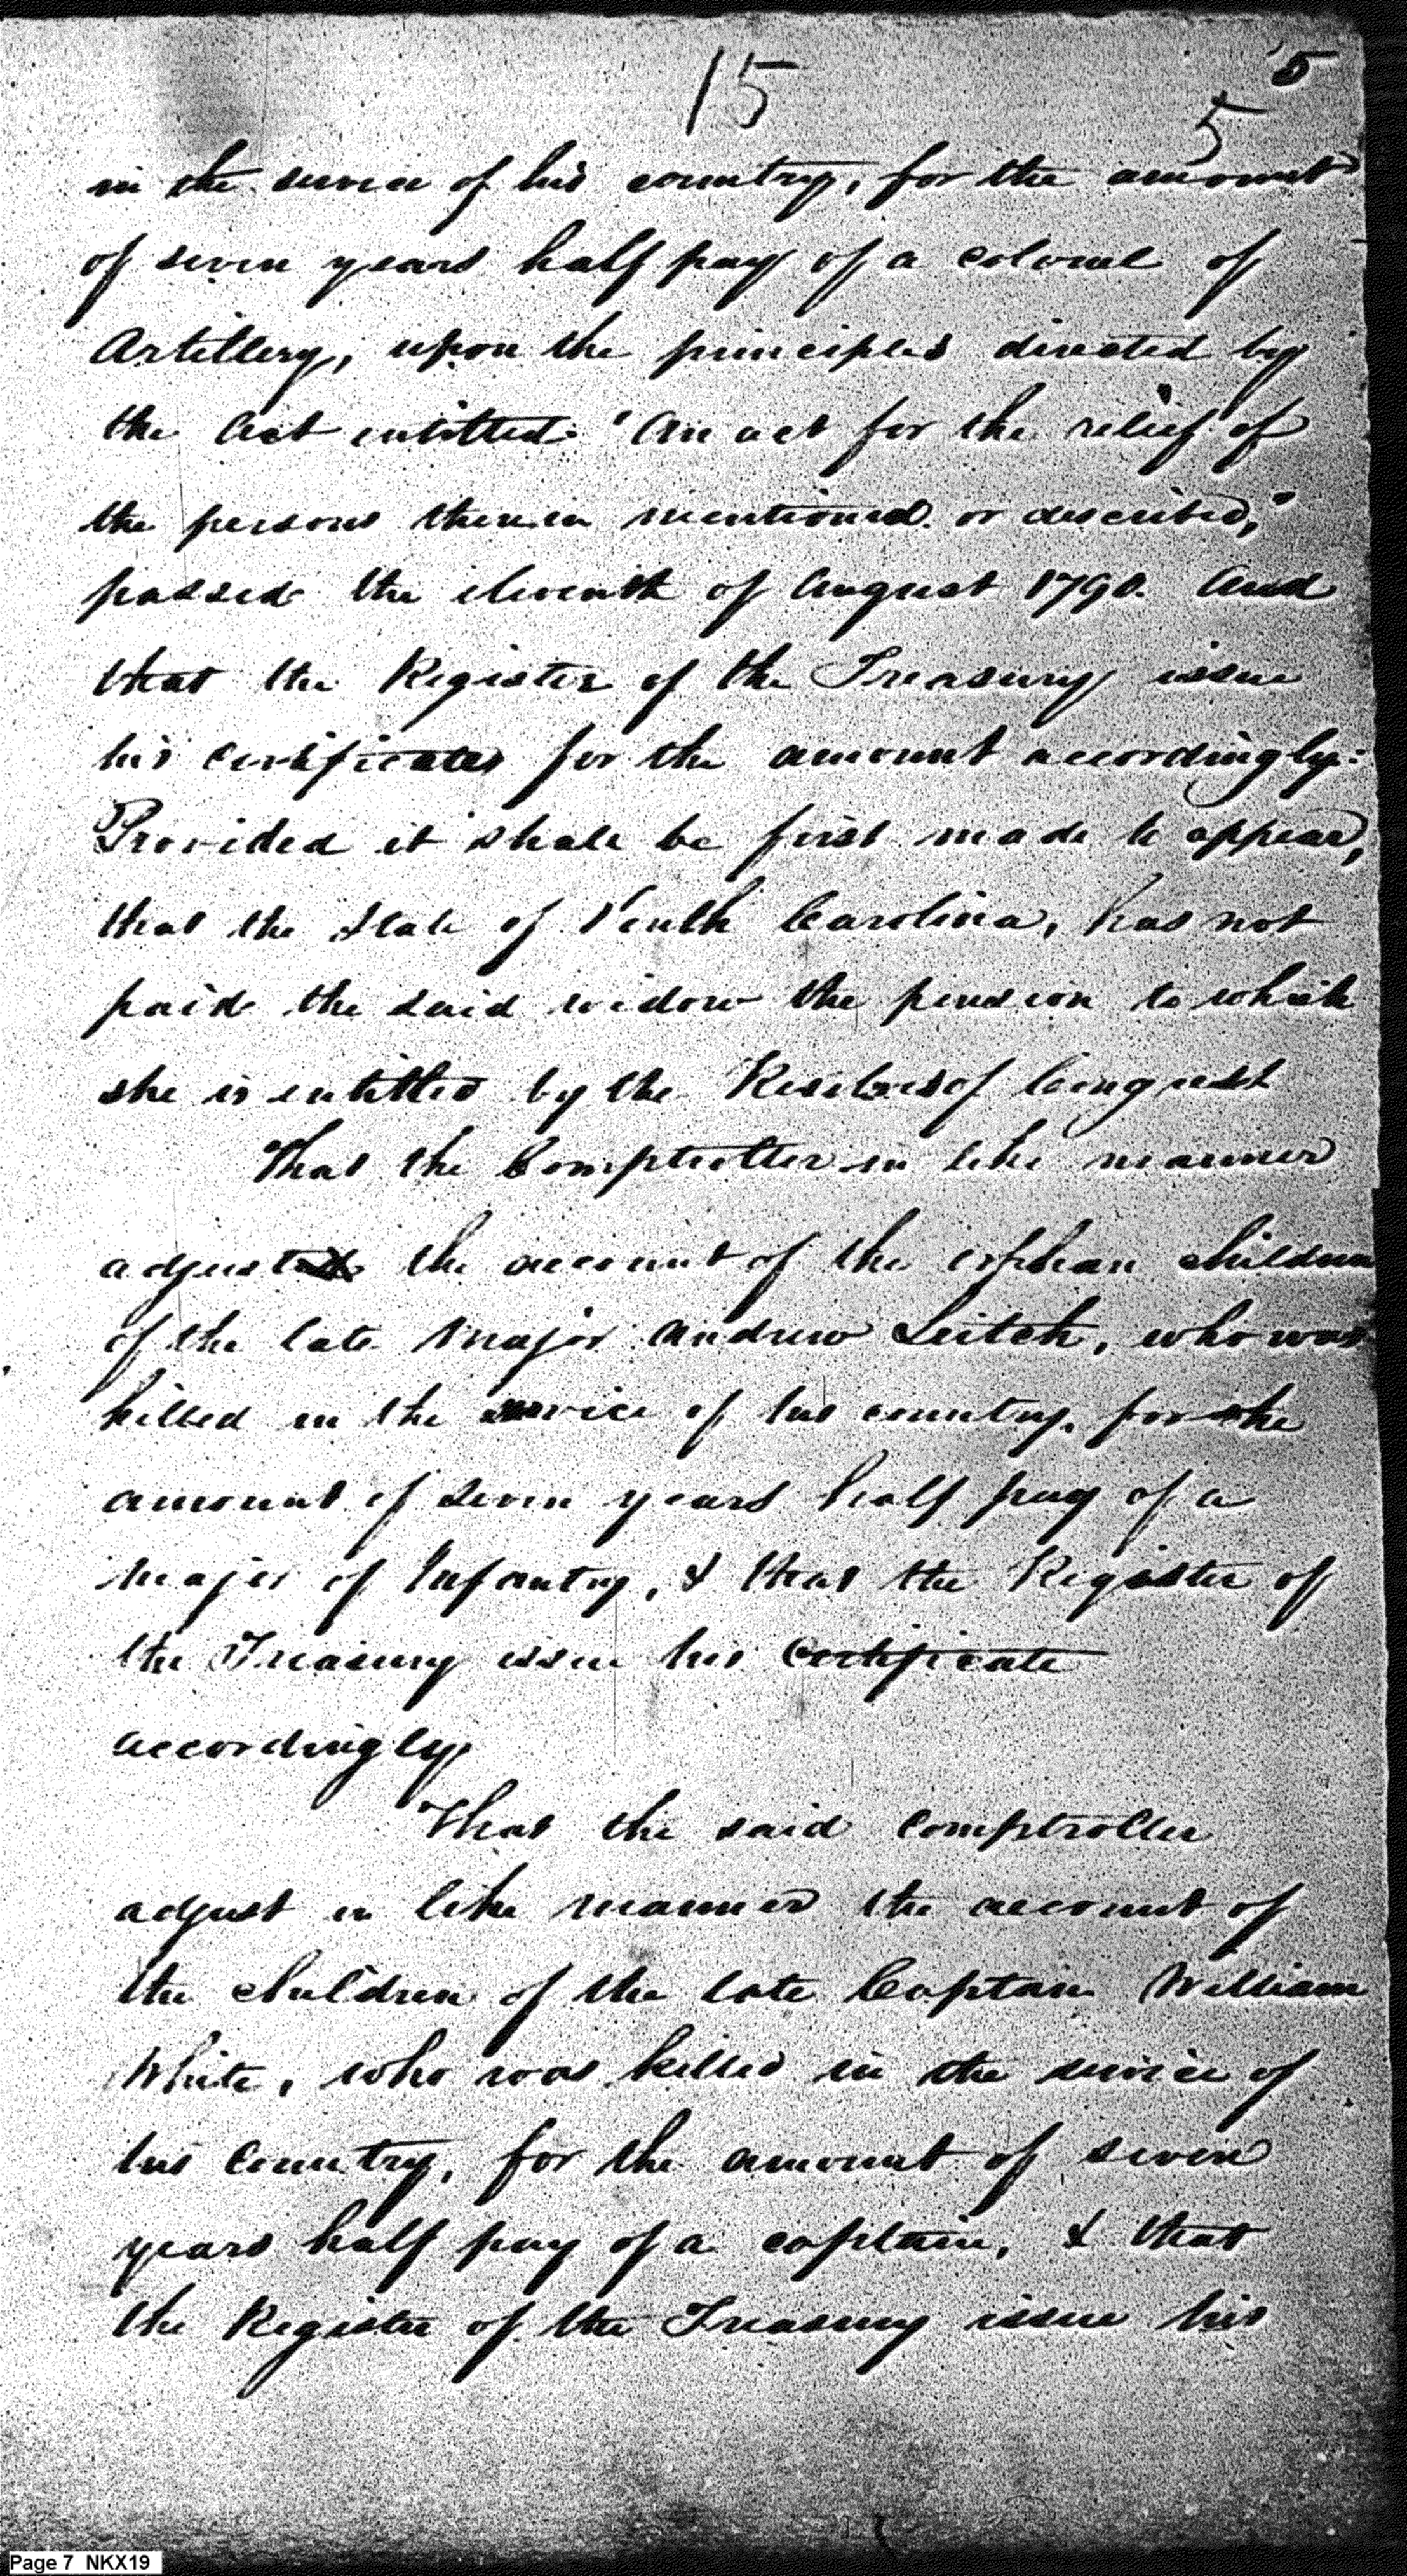 15
5
5
in the service of his country, for the amount
of seven years half pay of a colonel of
Artillery, upon the principles directed by
the Act entitled "An act for the relief of
the persons therein mentioned or described,"
passed the eleventh of August 1790. And
that the Register of the Treasury issue
his certificates for the amount accordingly:
Provided it shall be first made to appear,
that the State of South Carolina, has not
paid the said widow the pension to which
she is entitled by the Resolves of Congress
That the Comptroller in like manner
adjust the account of the orphan children
of the late Major Andrew Leitch, who was
killed in the service of his country, for the
amount of seven years half pay of a
Major of Infantry, & that the Register of
the Treasury issue his certificate
accordingly
That the said Comptroller
adjust in like manner the account of
the children of the late Captain William
White, who was killed in the service of
his Country, for the amount of seven
years half pay of a captain, & that
the Register of the Treasury issue his
Page 7 NKX19